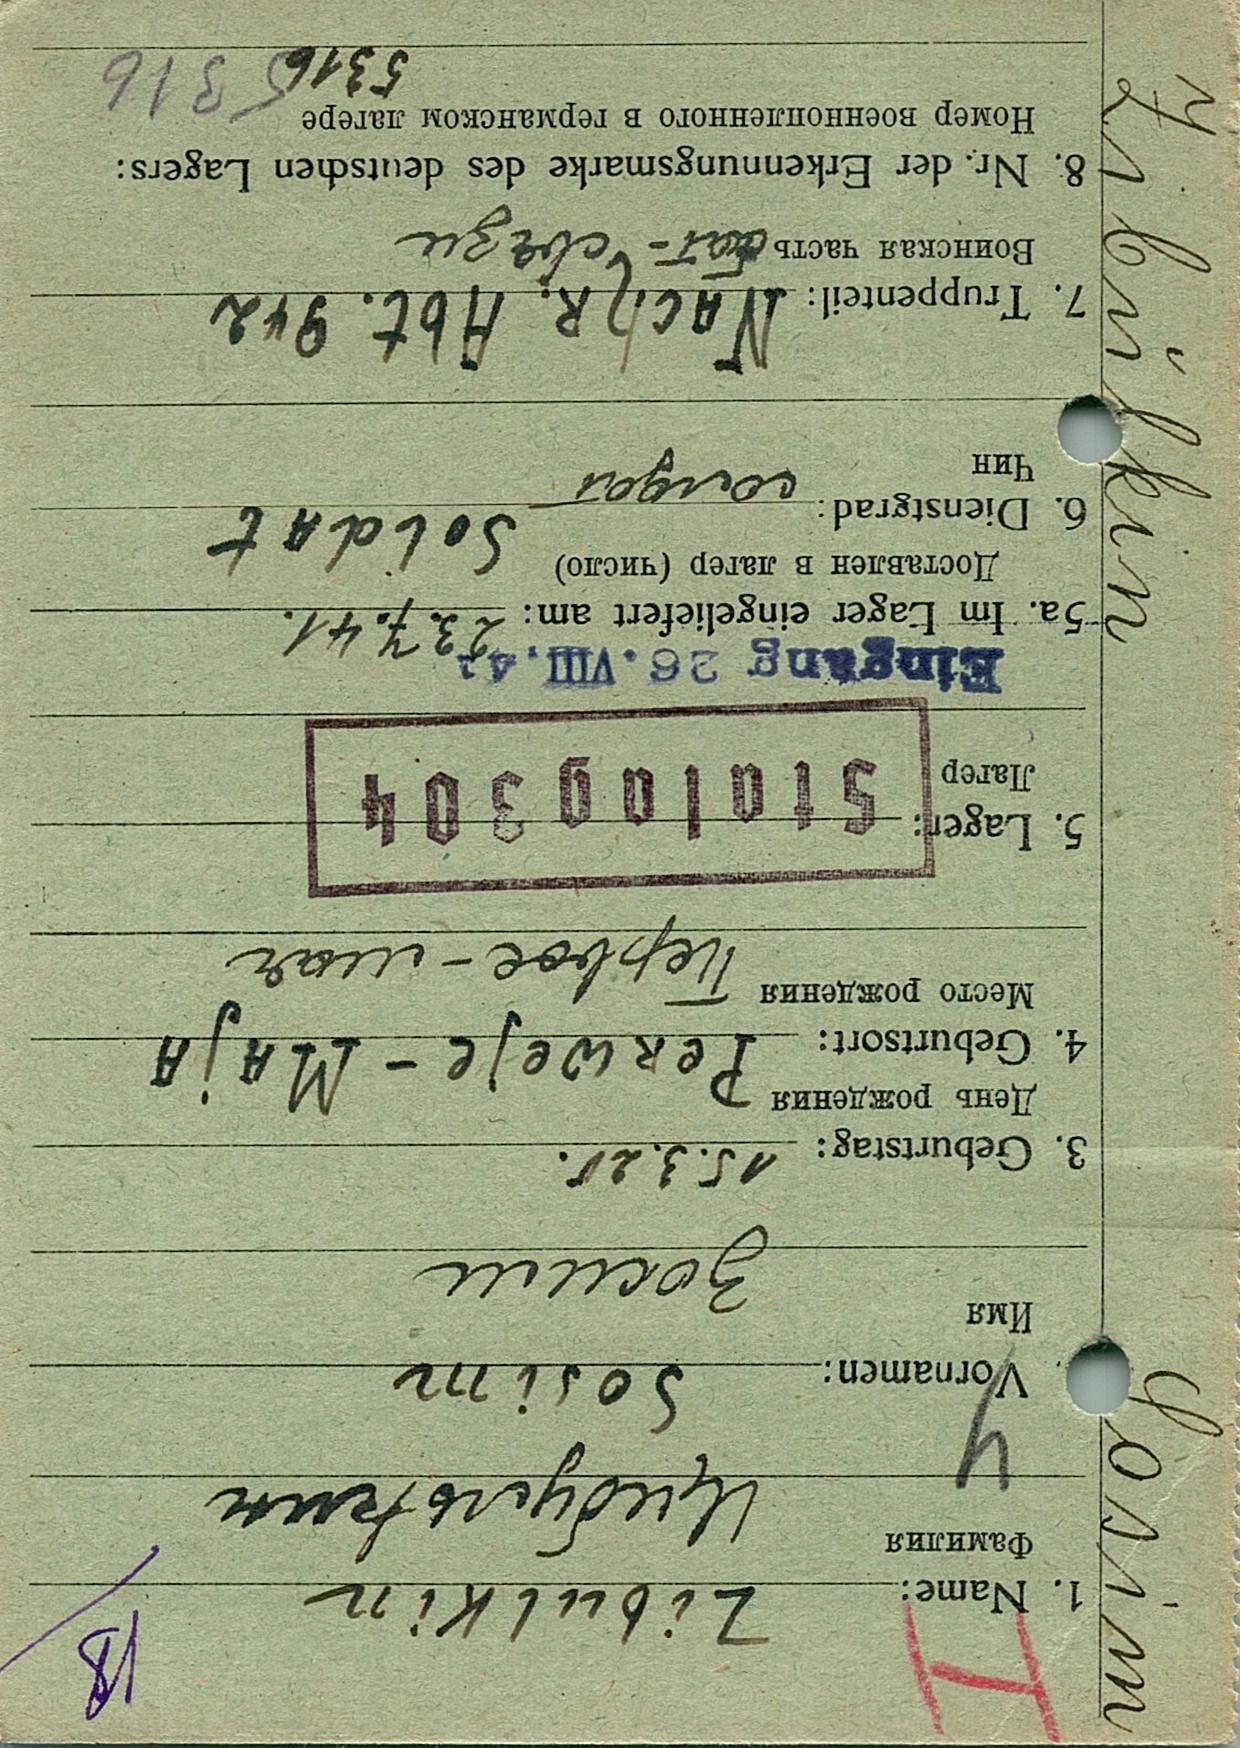 Zibülkin Sosim
18
H
1. Name: Zibulkin
Фамилия Цибулькин
4
Vornamen: Sosim
Имя Зосим
3. Geburtstag: 15.3.21.
День рождения
4. Geburtsort: Perweje - Maja
Место рождения Первое - мая
5. Lager: Stalag 304
Лагер
Eingang 26. VIII. 41
5a. Im Lager eingeliefert am: 23.7.41.
Доставлен в лагер (число)
6. Dienstgrad: Soldat
Чин солдат
7. Truppenteil: Nachr. Abt. 942
Воинская часть бат-связи
8. Nr. der Erkennungsmarke des deutschen Lagers:
Номер военнопленного в германском лагере
5316 5316